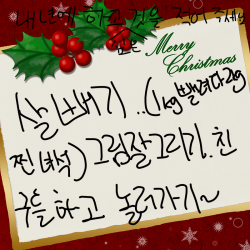 내년에 하고 싶은 것을 적어 주세요
Merry
Christmas
살빼기..(1kg빼려다 2g
찐 녀석) 그림잘그리기. 친
구들하고 놀러가기~